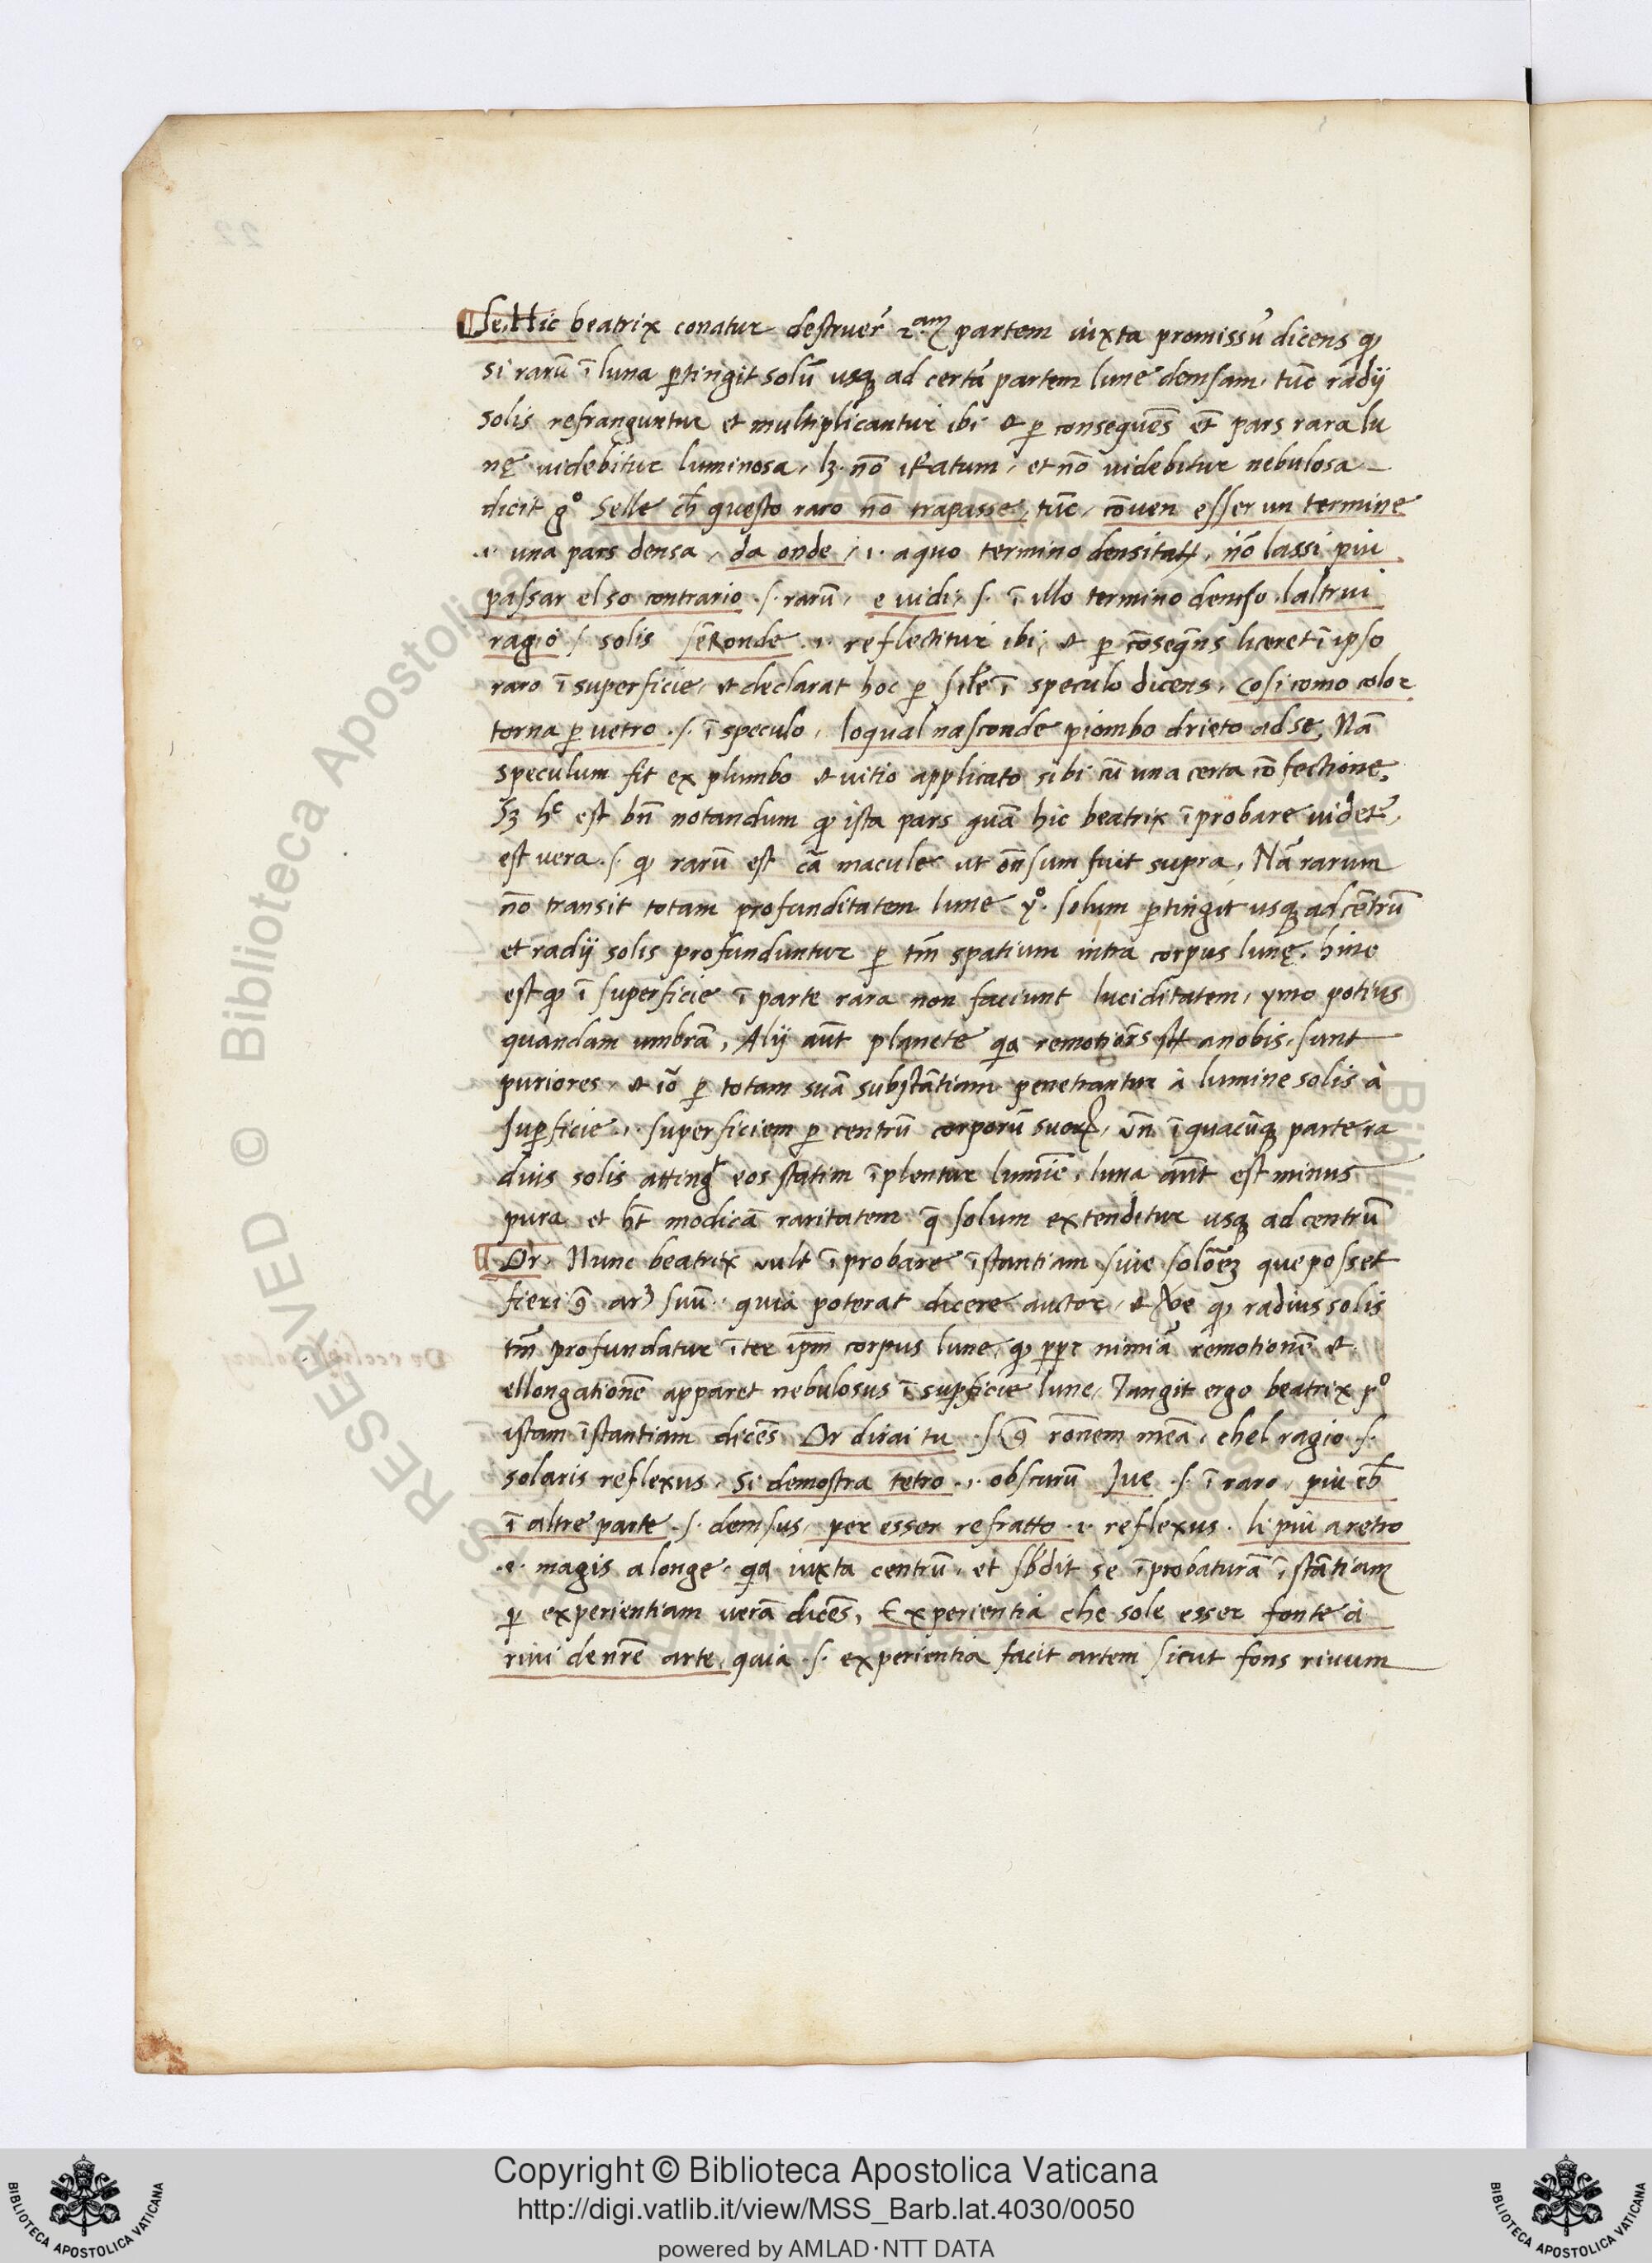 Se, Hic beatrix conatur destruer̃ 2.am partem iuxta promissũ dicens ꝙ
si rarũ ĩ luna ꝑtingit solũ usqꝫ ad certã partem lune demsam, tũc radij
solis refranguntur et multiplicantur ibi & ꝑ consequẽs et̃ pars rara lu
nę uidebitur luminosa, lꝫ nõ , et nõ uidebitur nebulosa
dicit gº Selle ch̃ questo raro nõ trapasse, tũc, cõuen esser un termine
.i. una pars densa, da onde .i. aquo termino , nõ lassi piu
passar el so contrario .s. rarũ, e uidi, s. ĩ illo termino demso laltrui
ragio s. solis .i. reflectitur ibi, & ꝑ cõseq̃ns luceret ĩ ipso
raro ĩ superficie, & declarat hoc ꝑ sil̃e ĩ speculo dicens, Cosi como color
torna ꝑ uetro .s. ĩ speculo, loqual nasconde piombo drieto ad se, Nã
speculum fit ex plumbo & uitio applicato sibi cũ una certa cõfectione.
Sꝫ hc est bñ notandum ꝙ ista pars quã hic beatrix ĩprobare uidet̃,
est vera .s. ꝙ rarũ est cã macule ut on̄sum fuit supra, Nã rarum
nõ transit totam profunditatem lune yº. solum ꝑtingit usqꝫ ad cẽtrũ
et radij solis profunduntur ꝑ tm̃ spatium intra corpus lunę. hinc
est ꝙ ĩ superficie ĩ parte rara non faciunt luciditatem, ymo potius
quandam umbrã, Alij aũt planete qa remotiores a nobis, sunt
puriores, & iõ ꝑ totam suã substãtiam penetrantur à lumine solis à
suꝑficie .i. superficiem ꝑ centrũ corporũ suoꝝ, vñ ĩ quacũqꝫ parte ra
dius solis atting̃ eos statim ĩplentur lumĩe, luna aũt est minus
pura et ht̃ modicã raritatem q̃ solum extenditur usqꝫ ad centrũ
Or, Nunc beatrix vult ĩprobare ĩstantiam siue solõeꝫ que posset
fieri ꝯ suũ, quia poterat dicere auctor, & ꝙ radius solis
tm̃ profundatur ĩter ip̃m corpus lune, ꝙ ꝓpr nimiã remotionẽ &
ellongationẽ apparet nebulosus ĩ suꝑficie lune, Tangit ergo beatrix pº
istam ĩstantiam dicẽs Or dirai tu .s. ꝯ rõnem meã, chel ragio .s.
solaris reflexus, Si demostra tetro .i. obscurũ Iue .s. ĩ raro, piu ch̃
ĩ altre parte .s. demsus, per esser refratto .i. reflexus. li piu a retro
.i. magis a longe, qa iuxta centrũ, et sb̃dit se ĩprobaturã ĩstãtiam
ꝑ experientiam uerã dicẽs, Experientia che sole esser fonte à
riui de nr̃e arte, quia .s. experientia facit artem sicut fons riuum
Copyright © Biblioteca Apostolica Vaticana
http://digi.vatlib.it/view/MSS_Barb.lat.4030/0050
powered by AMLAD·NTT DATA